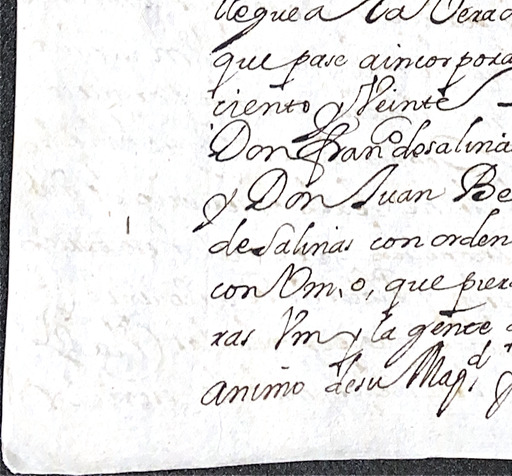 llegue a la Vera
que pase aincorpora
ciento y Veinte
Don Fran.co de salina
y Don Juan Be
de Salinas con orden
con Vm, o, que pier
ras Vm y la gente
animo desu Mag.d